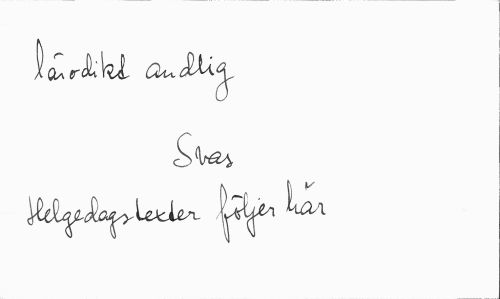 lärodikt andlig
Svas
Helgedagstexter följer här